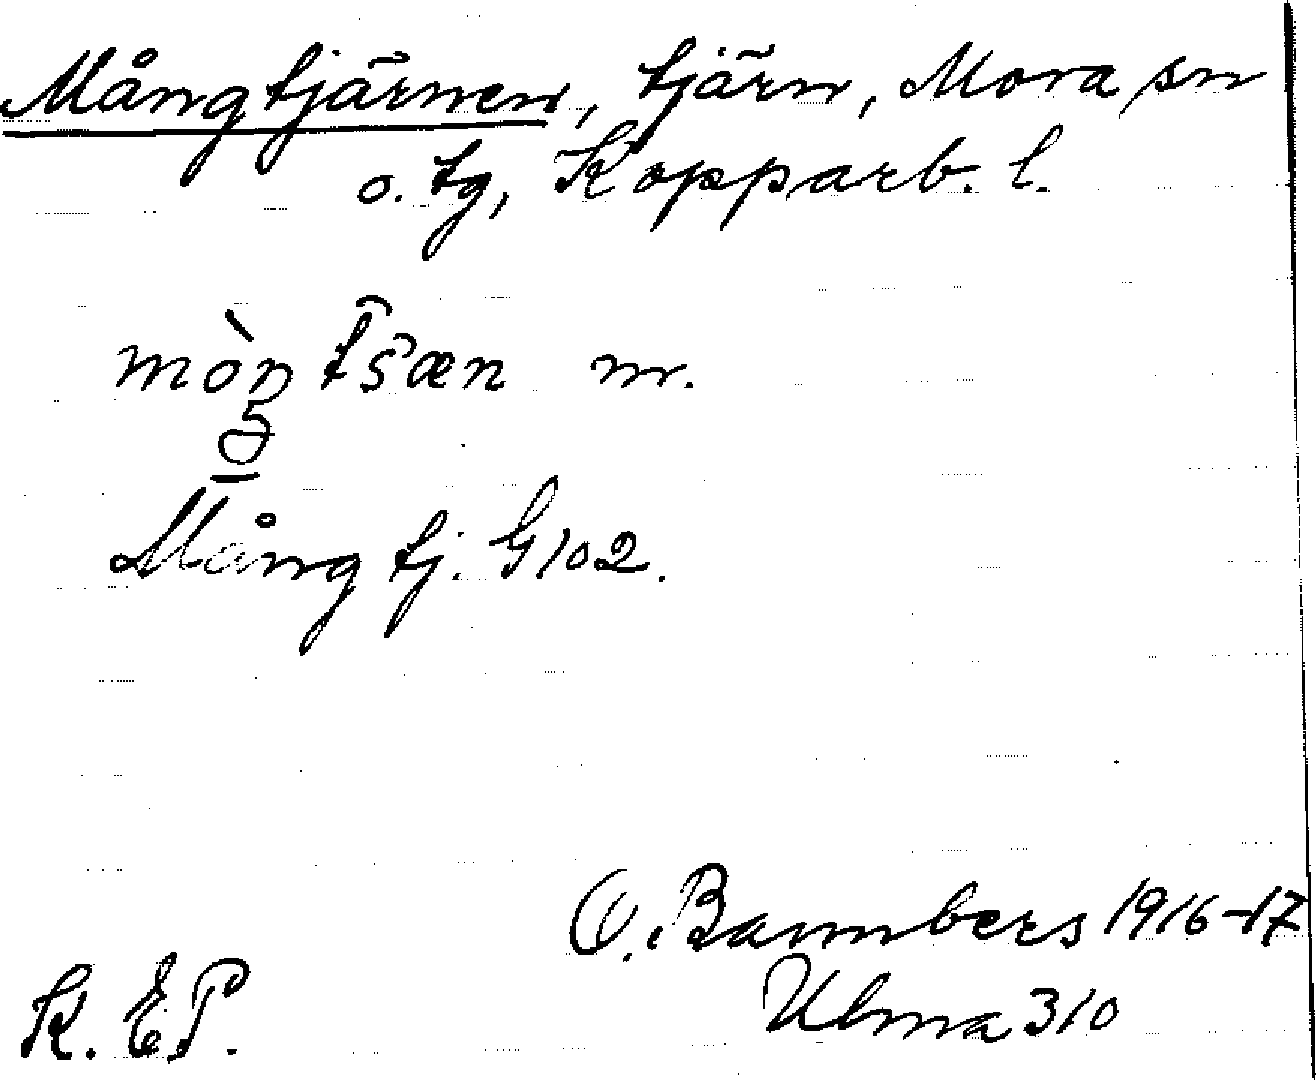 Mångtjärnen, tjärn, Mora sn
o. tg, Kopparb. l.
mòn tsæn m.
Mång tj. G 102.
O. Bannbers 1916-17
Ulma 310
K. EP.